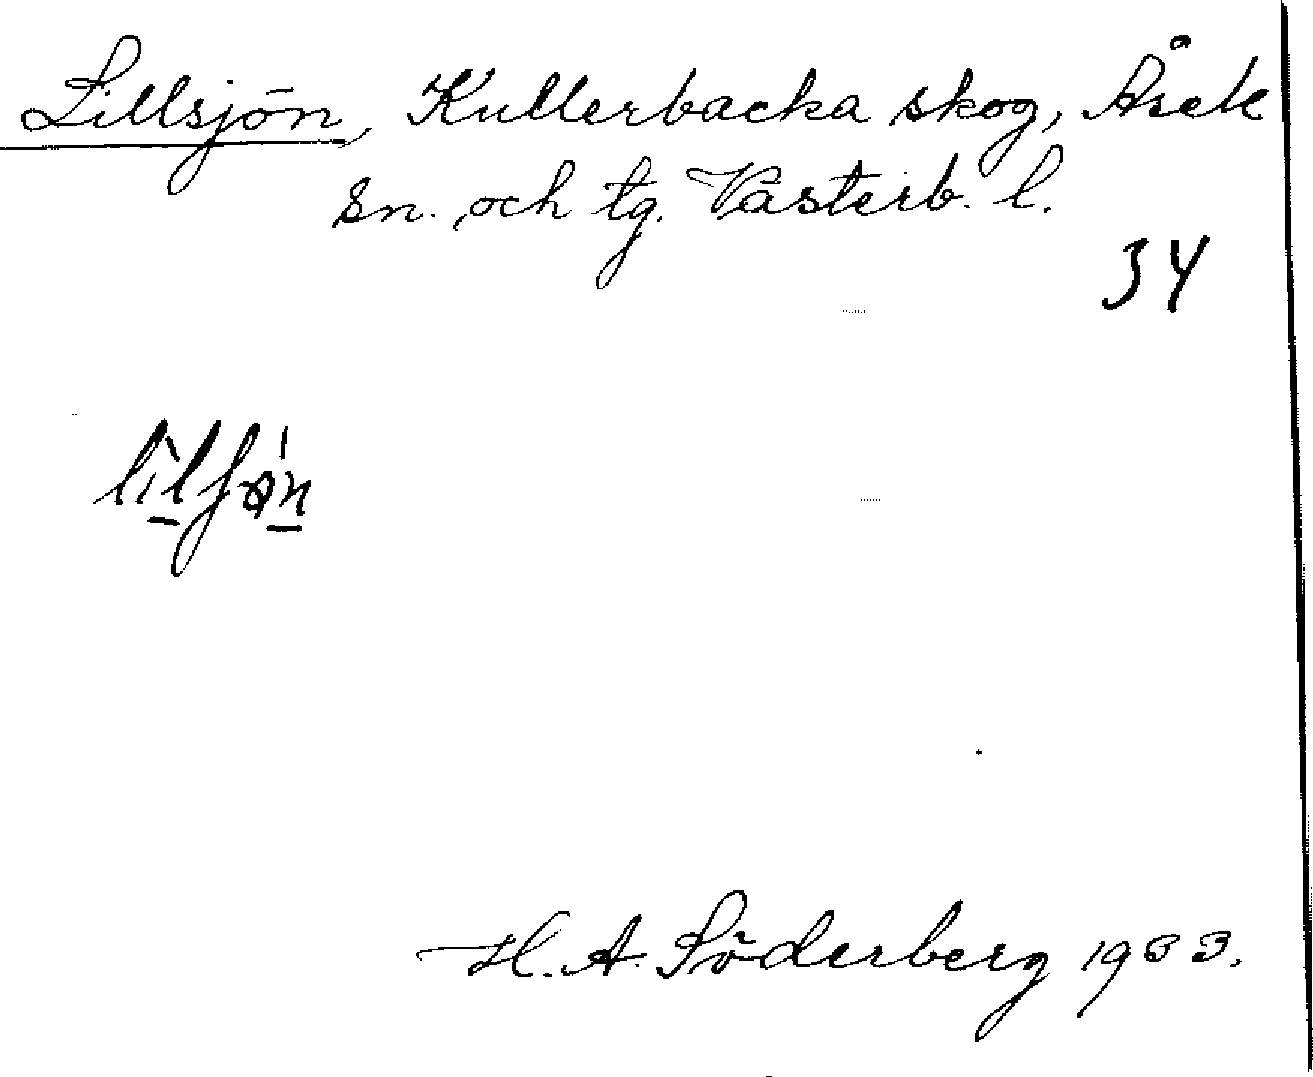 Lillsjön, Kullerbacka skog, Åsele
sn. och tg. Västerb. l.
34
H. A. Söderberg 1933.